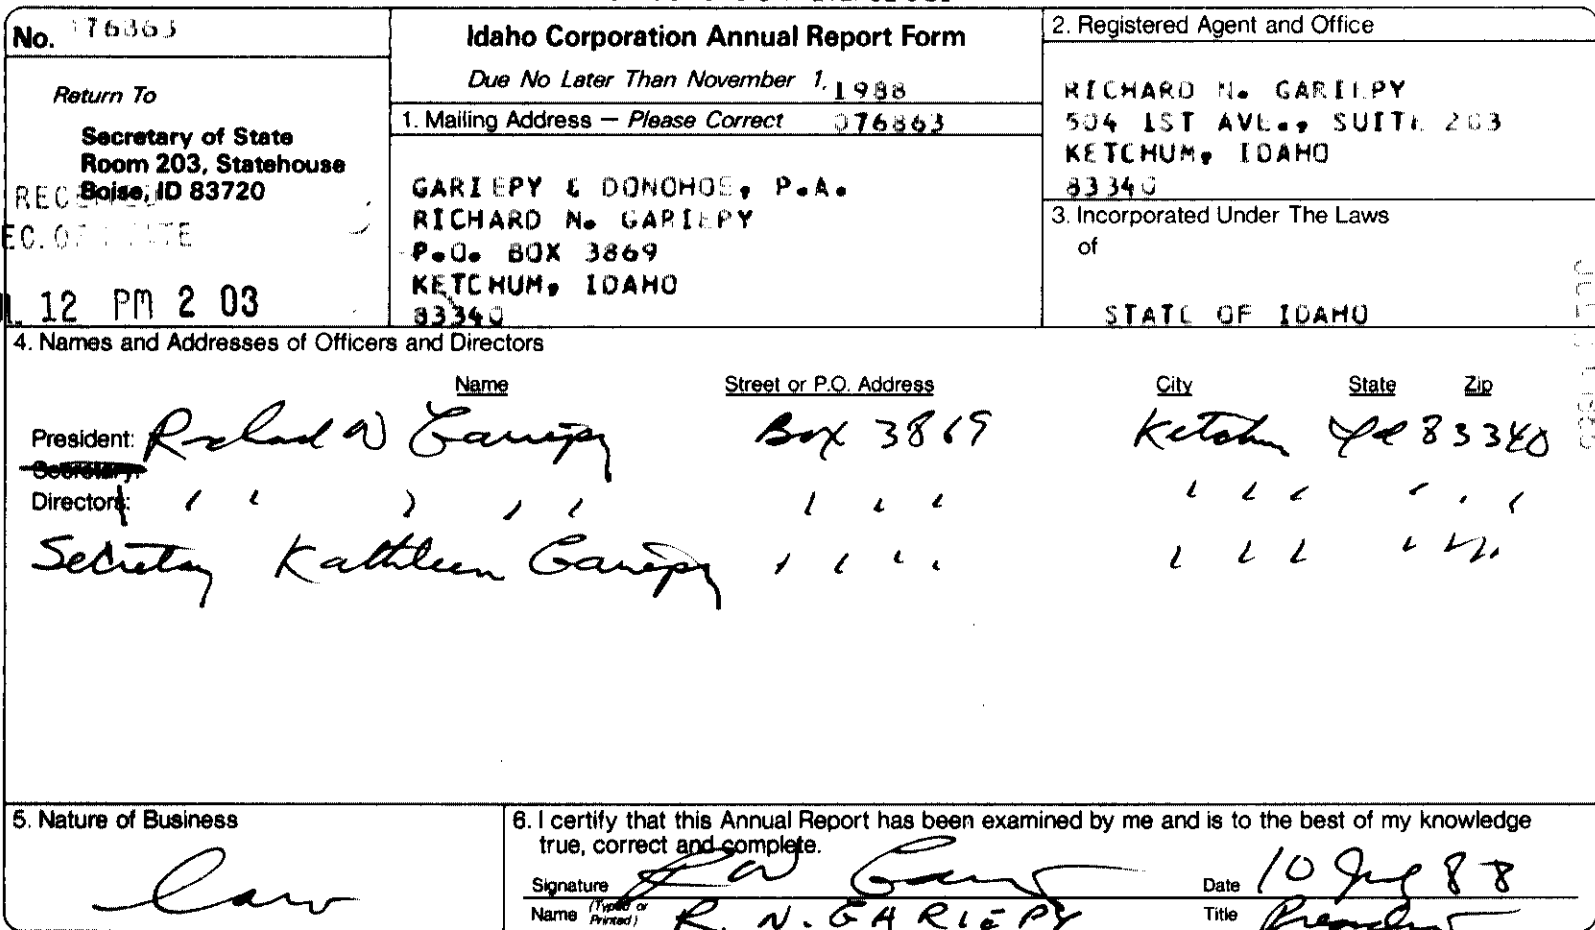 No. 76863
Idaho Corporation Annual Report Form
Due No Later Than November 1, 1988
Return To
Secretary of State
Room 203, Statehouse
Boise, ID 83720
12 PM 2 03
1. Mailing Address — Please Correct 076863
GARIEPY & DONOHOE, P.A.
RICHARD N. GARIEPY
P.O. BOX 3869
KETCHUM, IDAHO
83340
2. Registered Agent and Office
RICHARD N. GARIEPY
504 1ST AVE., SUITE 203
KETCHUM, IDAHO
83340
3. Incorporated Under The Laws
of
STATE OF IDAHO
4. Names and Addresses of Officers and Directors
Name Street or P.O. Address City State Zip
President: Richard N Gariepy Box 3869 Ketchum Id 83340
Secretary:
Directors:
Secretary Kathleen Gariepy
5. Nature of Business
law
6. I certify that this Annual Report has been examined by me and is to the best of my knowledge
true, correct and complete.
Signature Date 10 88
Name (Typed or Printed) R. N. GARIEPY Title President